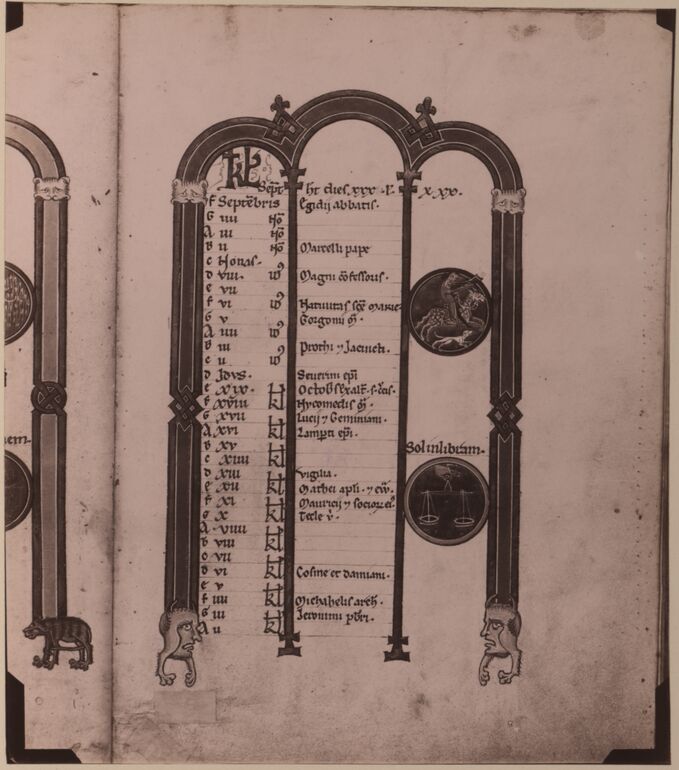 kl Sept̄ ht dies. xxx. l. xxx.
f Septēbris Egidii abbatis.
G iiii No
A iii No
b ii No Marcelli pape
c Nonas.
d viii. id Magni cōfessoris.
e vii
f vi id Natiuitas scē Marie
G v Gorgonii m̄.
A iiii id
b iii Prothi ⁊ Jacincti.
c ii id
d Idus Seuerini epi
e xix. kl
f xviii kl Nycomedis m̄.
G xvii kl Lucie ⁊ Geminiani.
A xvi kl Lampti epi.
b xv kl
c xiiii kl
Sol in libram.
d xiii kl vigilia.
e xii kl Mathei apli. ⁊ ew̄.
f xi kl Mauricii ⁊ socior. ei⁹
g x kl Tecle v̄.
A viiii kl
b viii kl
c vii kl
d vi kl Cosme et damiani.
e v kl
f iiii kl Michahelis arch.
G iii kl Jeronimi pbri.
A ii kl